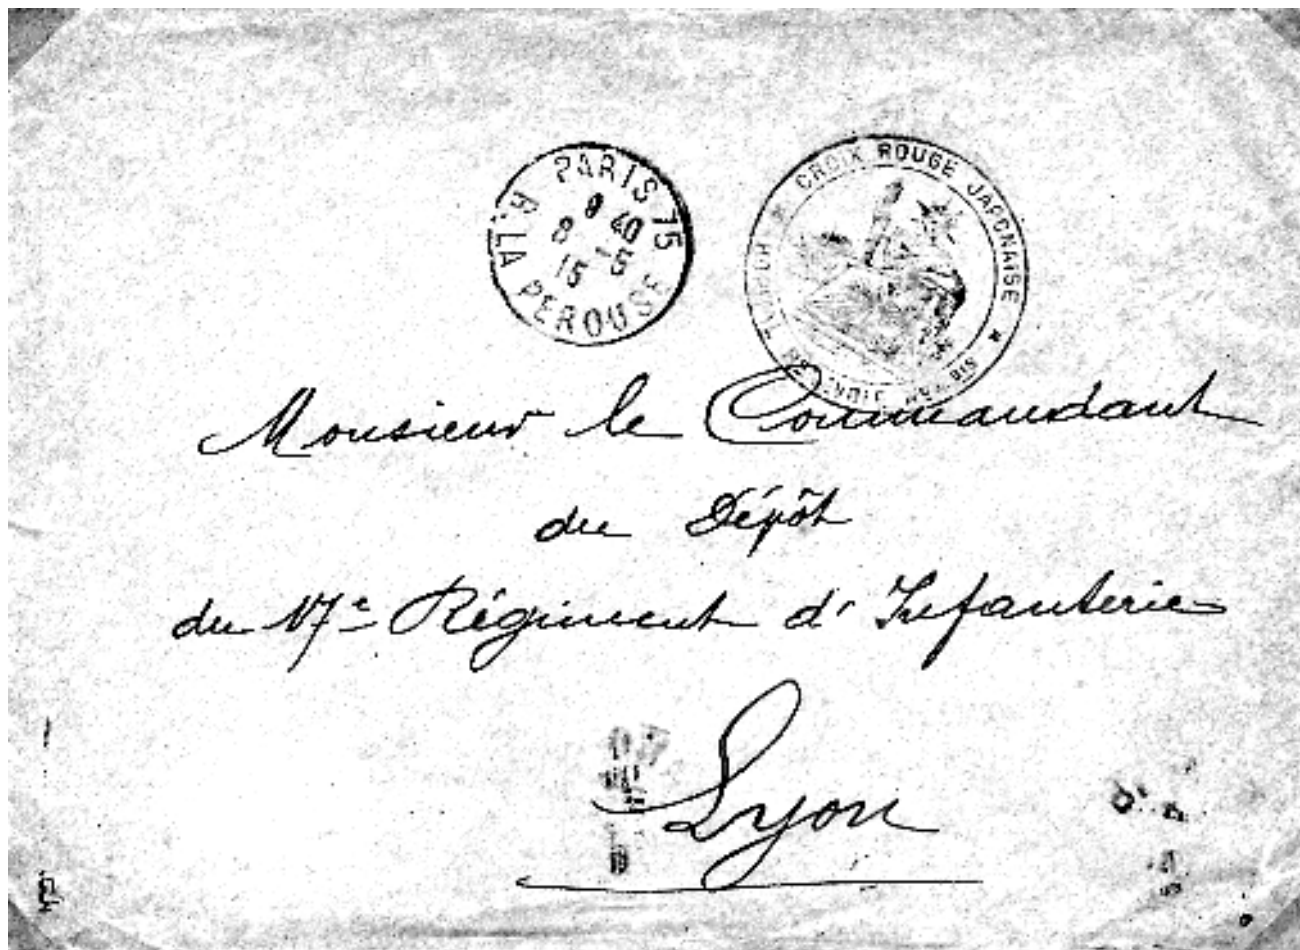 PARIS 75
9 40
8 -5
15
R. LA PEROUSE
CROIX ROUGE JAPONAISE
Monsieur le Commandant
du Dépôt
du 17e Régiment d'Infanterie
Lyon